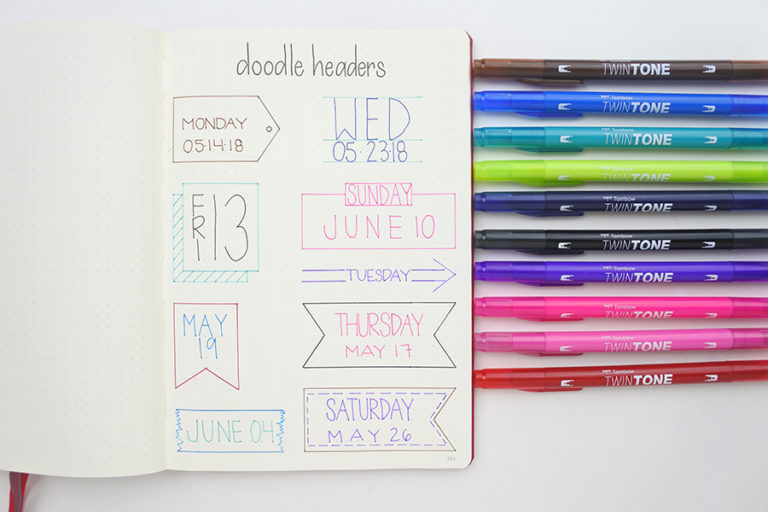 doodle headers
MONDAY
05·14·18
WED
05·23·18
FRI 13
SUNDAY
JUNE 10
TUESDAY
MAY
19
THURSDAY
MAY 17
JUNE 04
SATURDAY
MAY 26
Tombow
TWINTONE
Tombow
TWINTONE
Tombow
TWINTONE
Tombow
TWINTONE
Tombow
TWINTONE
Tombow
TWINTONE
Tombow
TWINTONE
Tombow
TWINTONE
Tombow
TWINTONE
Tombow
TWINTONE